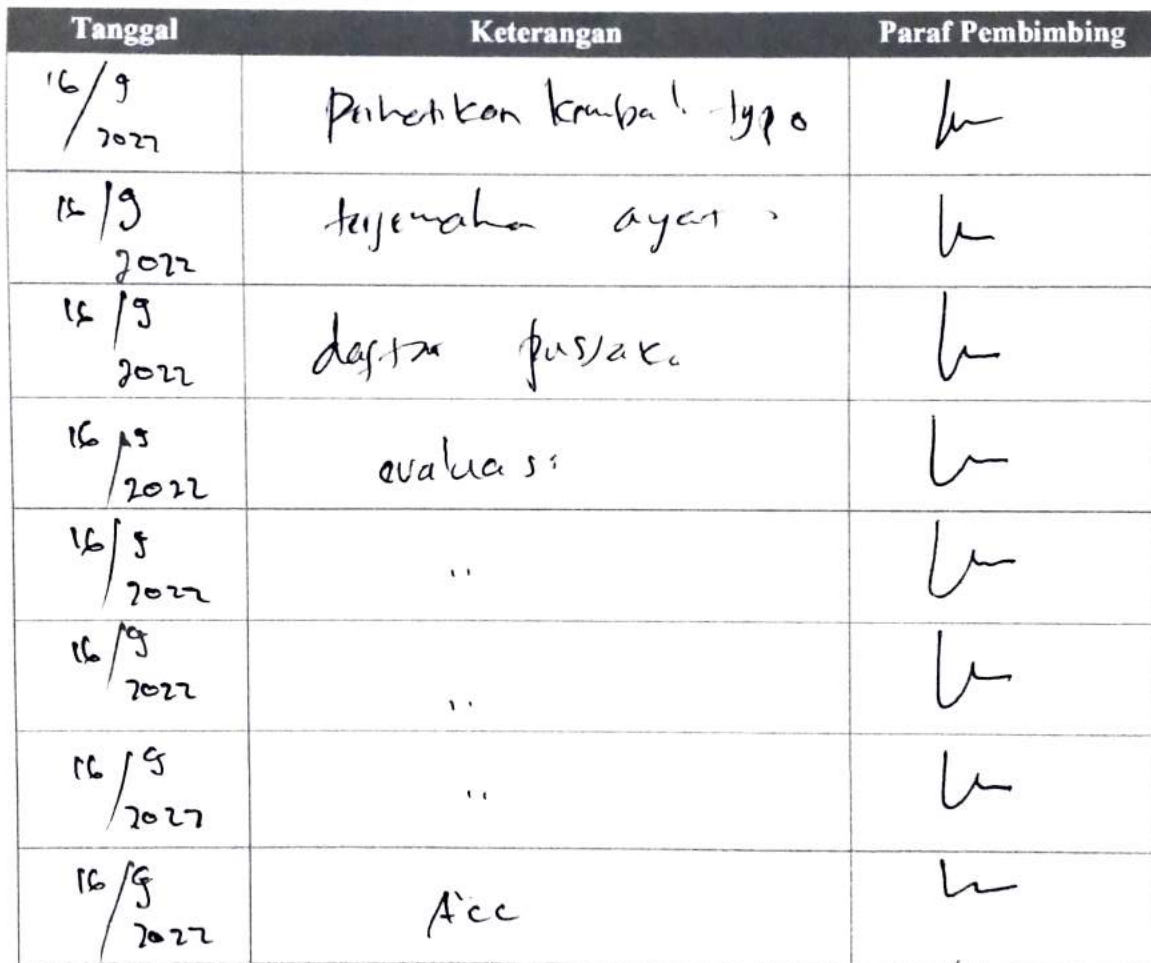 Tanggal Keterangan Paraf Pembimbing
16/9 2022 Perhatikan kembali typo
16/9 2022 terjemahan ayat
16/9 2022 daftar pustaka
16/9 2022 evaluasi
16/9 2022 "
16/9 2022 "
16/9 2022 "
16/9 2022 Acc